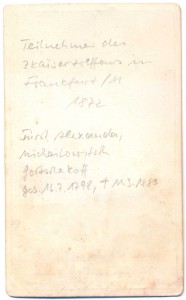 Teilnehmer des
3Kaisertreffens in
Frankfurt/M
1872
Fürst Alexander,
Michailowitsch
Gortschakoff
geb. 16.7.1798, † 11.3.1883